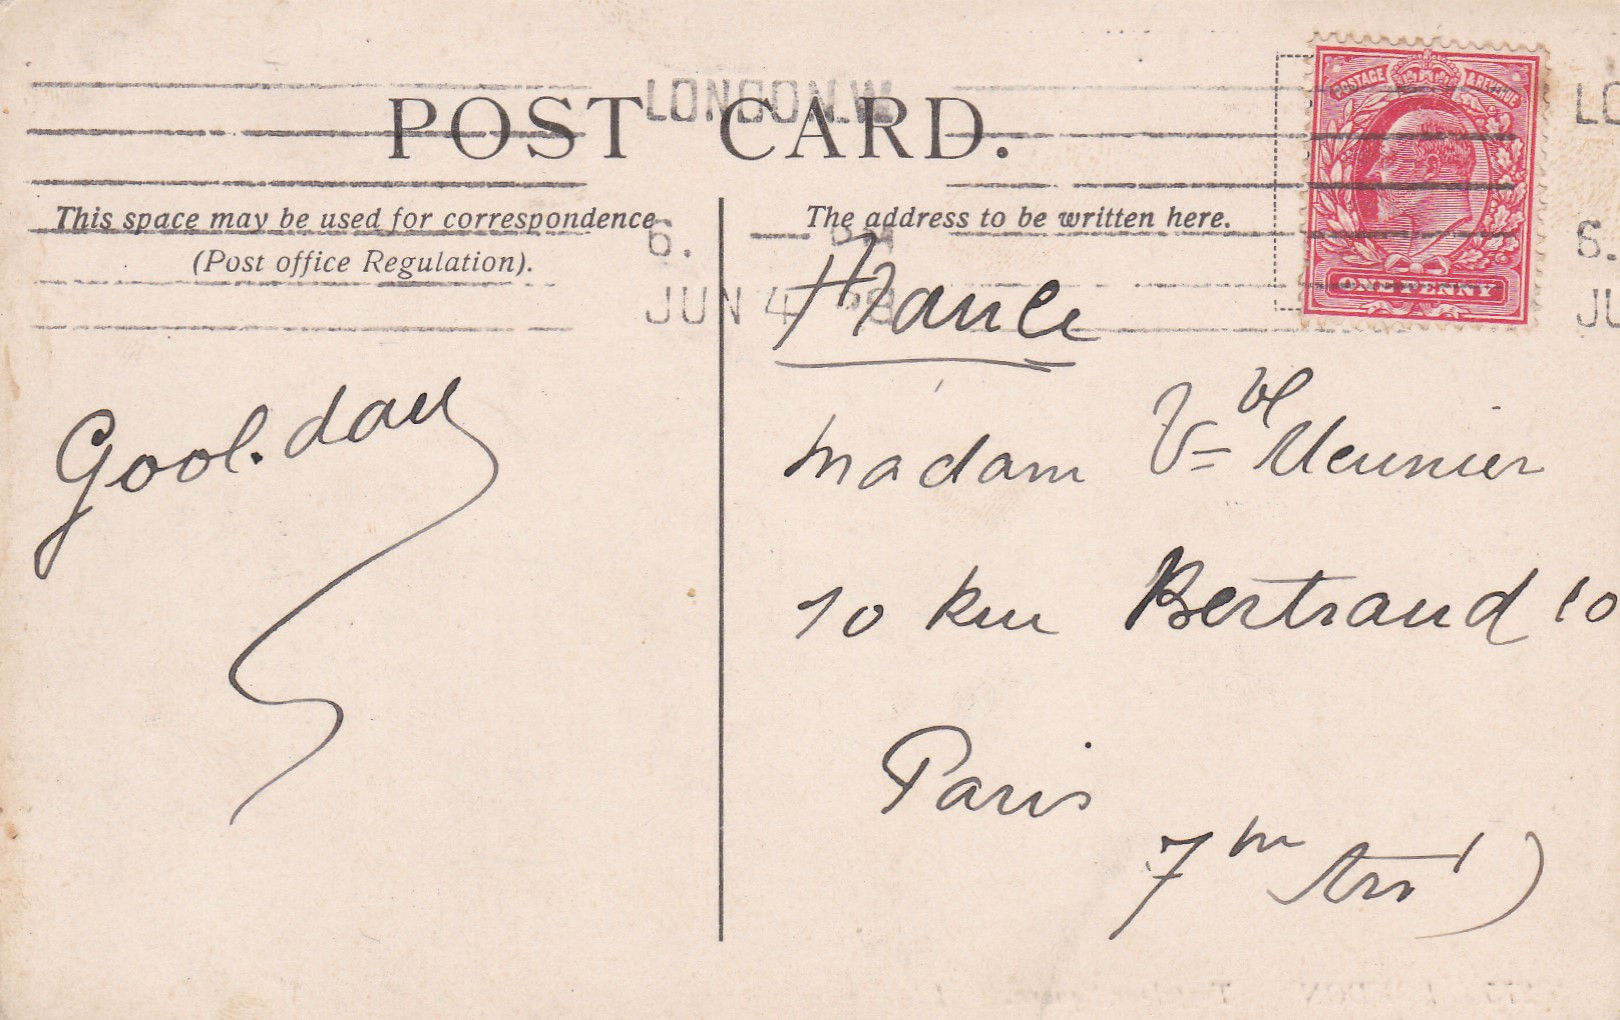 POST CARD.
LONDON.W.
This space may be used for correspondence
(Post office Regulation).
6. PM
JUN 4 08
Good.day
The address to be written here.
POSTAGE & REVENUE
ONE PENNY
LO
6.
JU
France
Madam Vve Meunier
10 Rue Bertrand 10
Paris
7m Arrt)